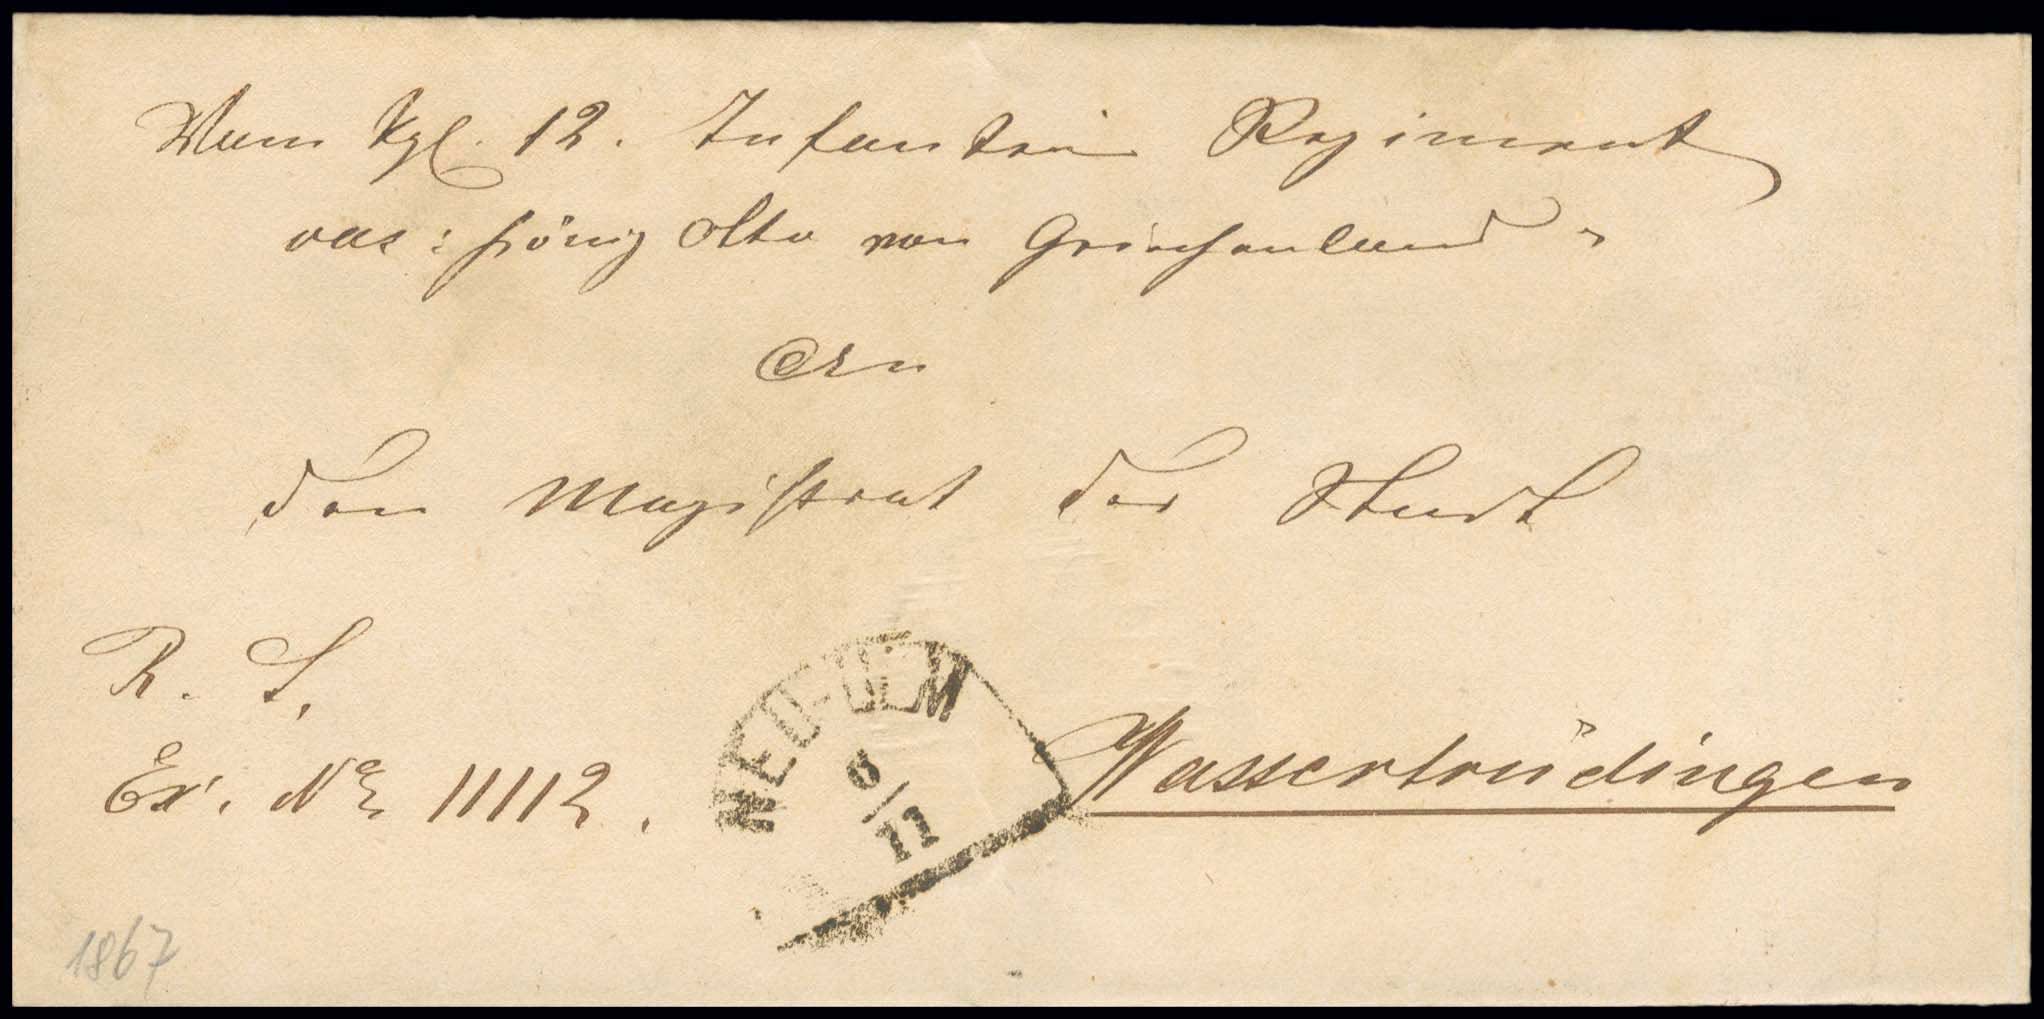 Vom Kgl. 12. Infanterie Regiment
vac: König Otto von Griechenland
An
den Magistrat der Stadt
R. S.
Ex. No 11112.
NEU-ULM
6/11
Wassertrüdingen
1867